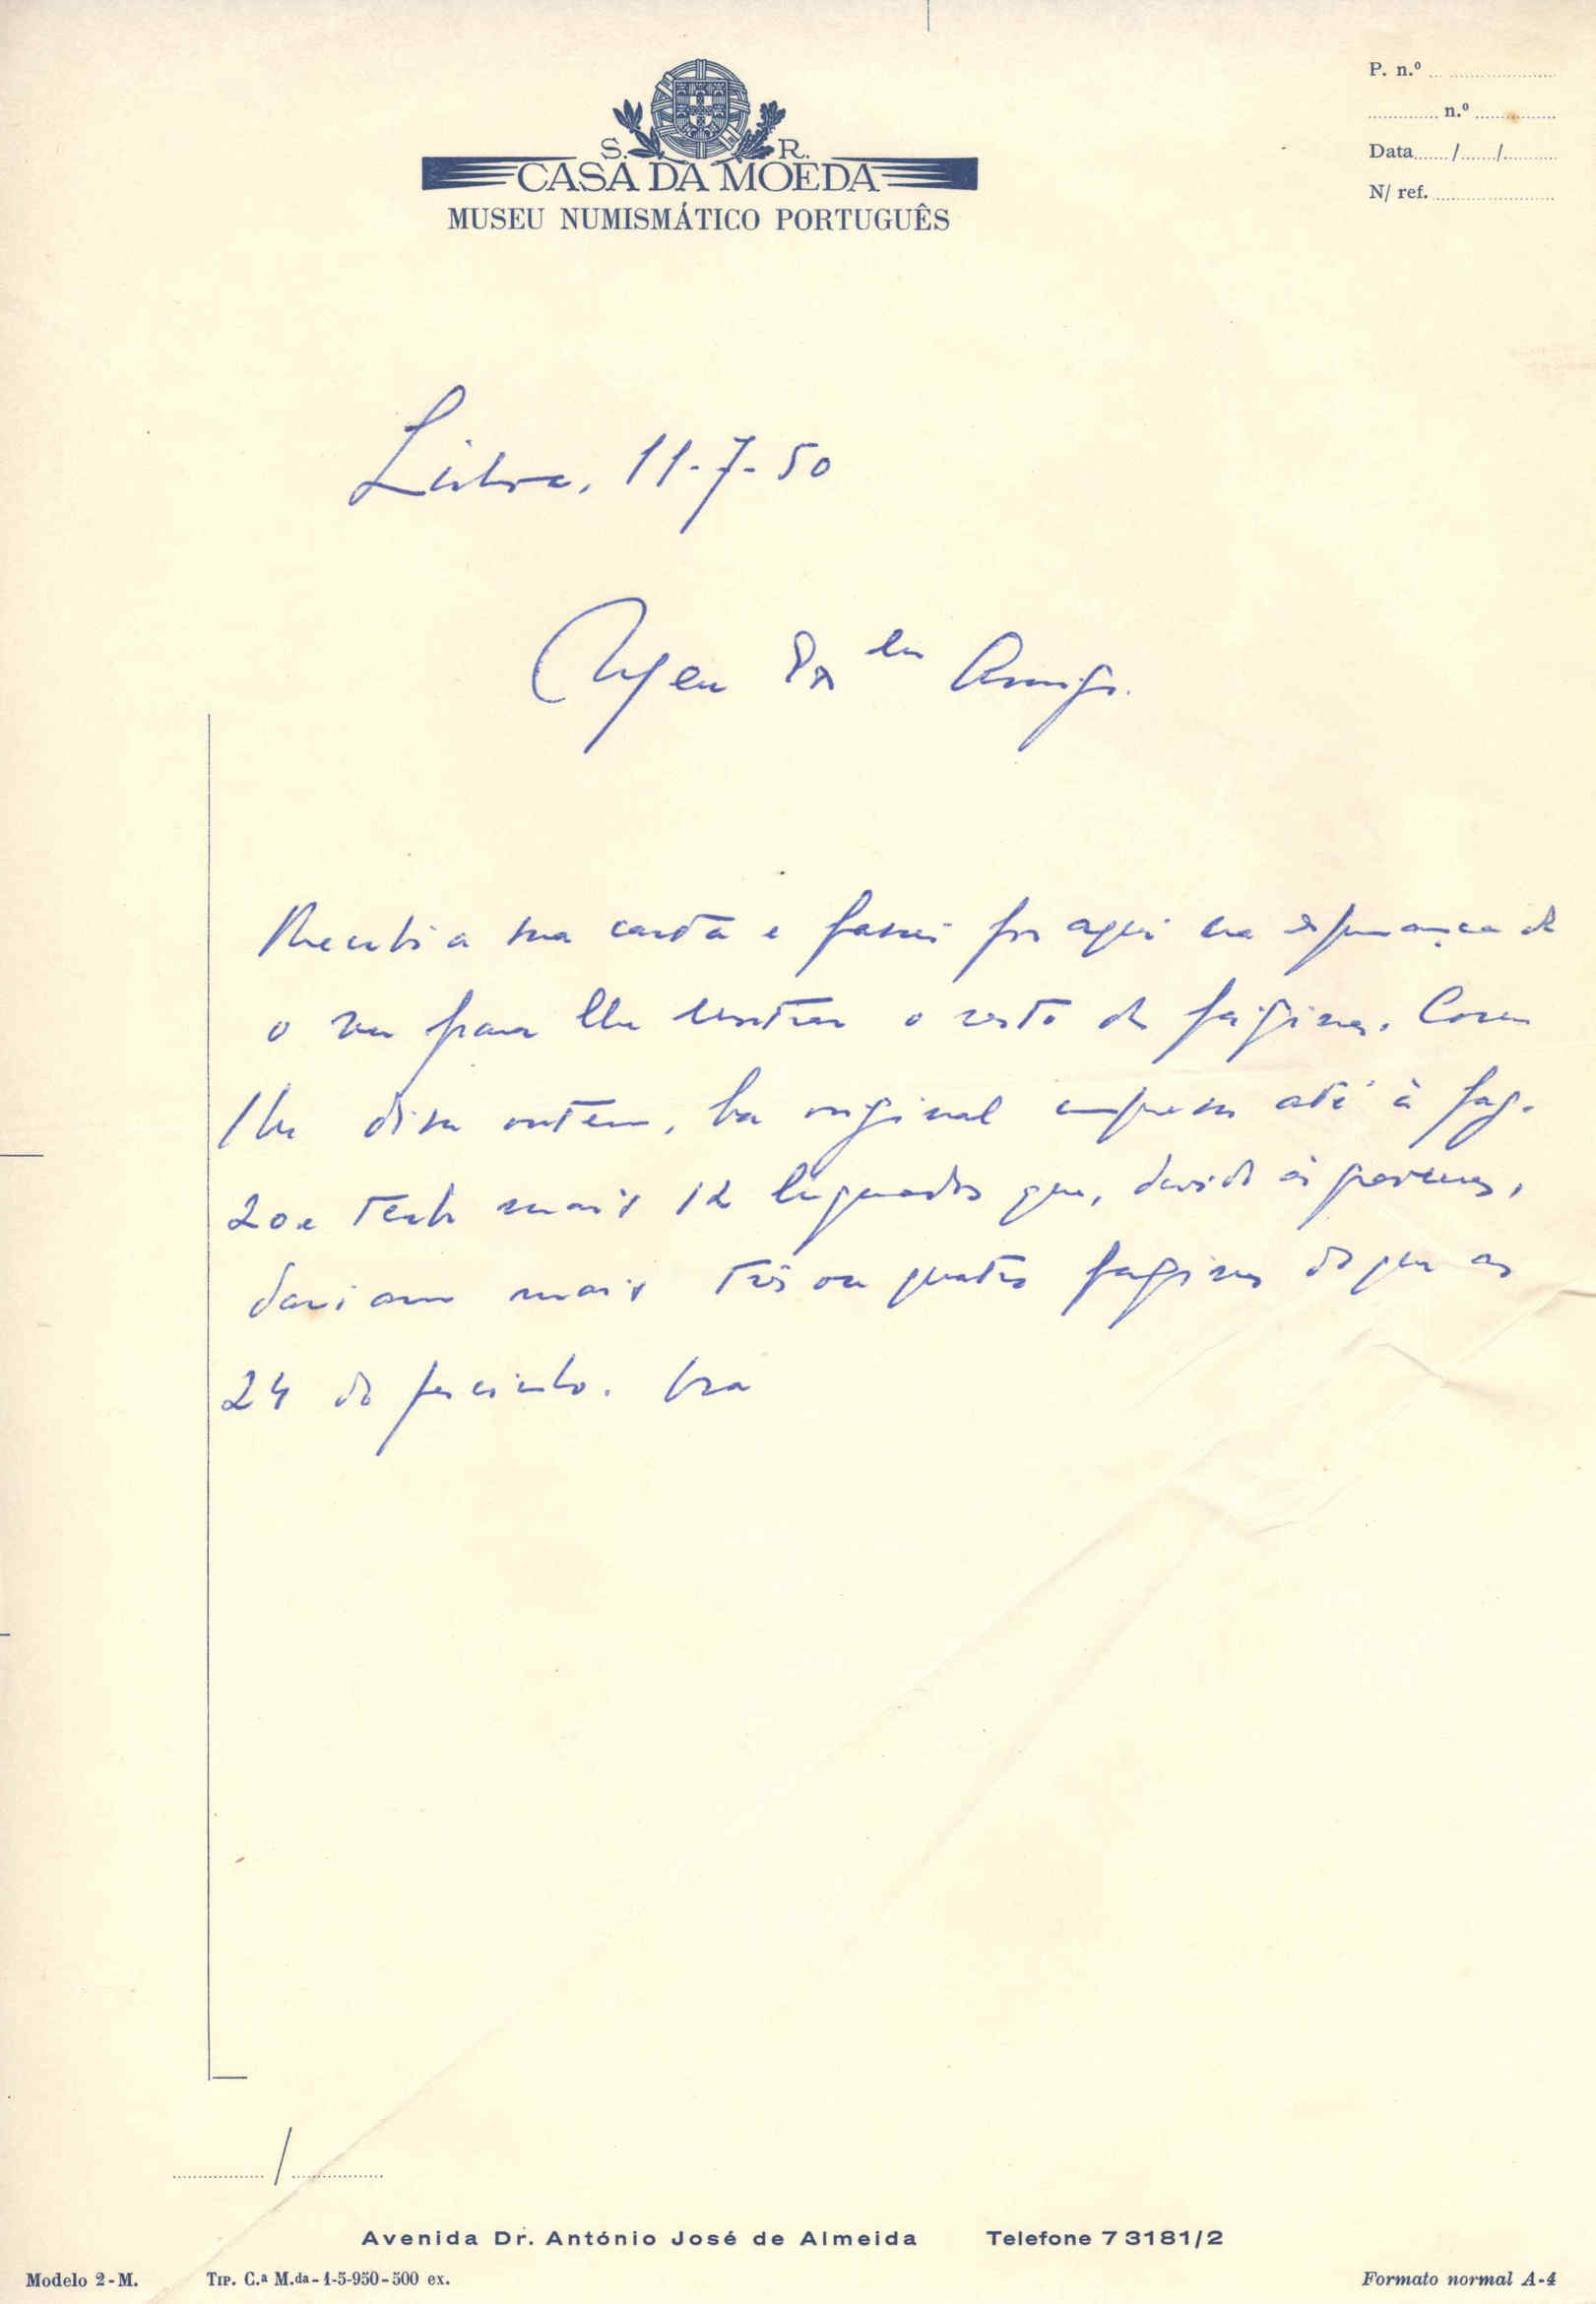 P. n.º
n.º
Data / /
N/ ref.
S. R.
CASA DA MOEDA
MUSEU NUMISMÁTICO PORTUGUÊS
Lisboa, 11-7-50
Meu Exmo Amigo.
Recebi a sua carta e passei por aqui na esperança de
o ver para lhe mostrar o resto das páginas. Como
lhe disse ontem, ha original impresso até à pag.
20 e tenho mais 12 linguados que, devido às gravuras,
dariam mais três ou quatro páginas do que as
24 do fasciculo. Ora
/
Avenida Dr. António José de Almeida Telefone 73181/2
Modelo 2-M. Tip. C.ª M.da-1-5-950-500 ex. Formato normal A-4